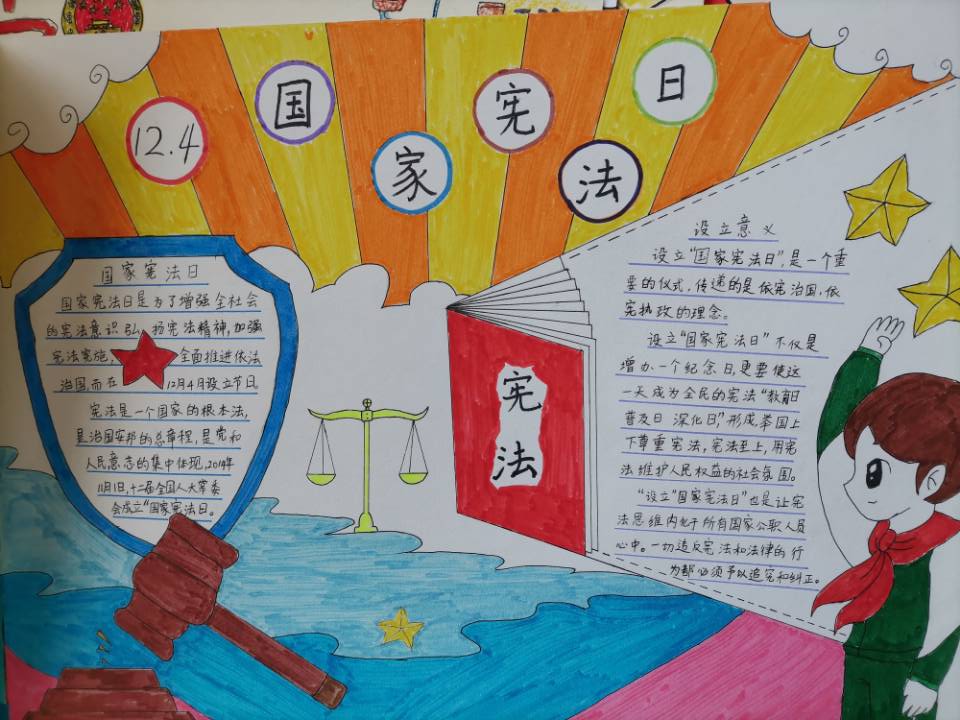 12.4
国家宪法日
国家宪法日
国家宪法日是为了增强全社会
的宪法意识弘扬宪法精神,加强
宪法实施, 全面推进依法
治国,而在 12月4月设立节日,
宪法是一个国家的根本法,
是治国安邦的总章程,是党和
人民意志的集中体现,2014年
11月1日,十二届全国人大常委
会成立“国家宪法日。
宪法
设立意义
设立“国家宪法日”,是一个重
要的仪式,传递的是依宪治国,依
宪执政的理念。
设立“国家宪法日”不仅是
增办一个纪念日,更要使这
一天成为全民的宪法“教育日
普及日 深化日”,形成举国上
下尊重宪法,宪法至上,用宪
法维护人民权益的社会氛围。
“设立“国家宪法日”也是让宪
法思维内化于所有国家公职人员
心中。一切违反宪法和法律的行
为都必须予以追究和纠正。